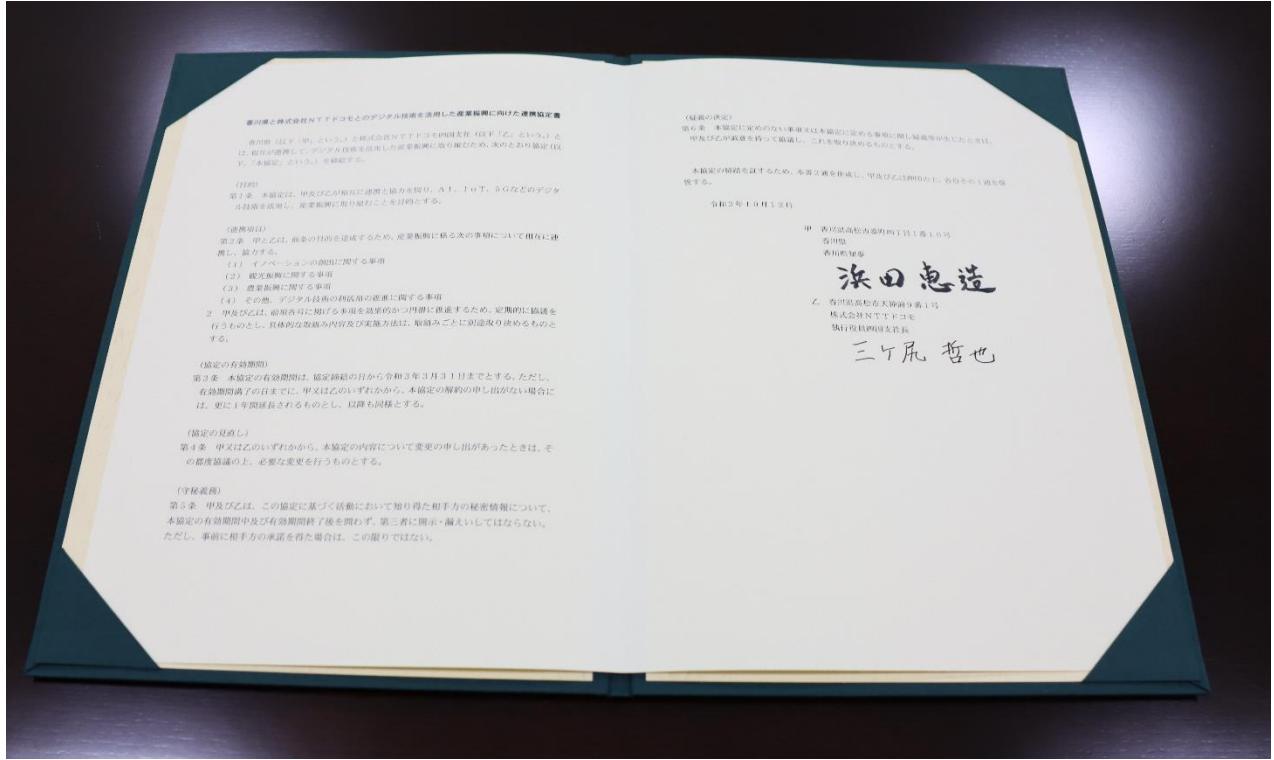 香川県と株式会社NTTドコモとのデジタル技術を活用した産業振興に向けた連携協定書
香川県(以下「甲」という。)と株式会社NTTドコモ四国支社(以下「乙」という。)と
は、相互が連携して、デジタル技術を活用した産業振興に取り組むため、次のとおり協定(以
下、「本協定」という。)を締結する。
(目的)
第1条 本協定は、甲及び乙が相互に連携と協力を図り、AI、IoT、5Gなどのデジタ
ル技術を活用し、産業振興に取り組むことを目的とする。
(連携項目)
第2条 甲と乙は、前条の目的を達成するため、産業振興に係る次の事項について相互に連
携し、協力する。
(1) イノベーションの創出に関する事項
(2) 観光振興に関する事項
(3) 農業振興に関する事項
(4) その他、デジタル技術の利活用の推進に関する事項
2 甲及び乙は、前項各号に掲げる事項を効果的かつ円滑に推進するため、定期的に協議を
行うものとし、具体的な取組み内容及び実施方法は、取組みごとに別途取り決めるものと
する。
(協定の有効期間)
第3条 本協定の有効期間は、協定締結の日から令和3年3月31日までとする。ただし、
有効期間満了の日までに、甲又は乙のいずれかから、本協定の解約の申し出がない場合に
は、更に1年間延長されるものとし、以降も同様とする。
(協定の見直し)
第4条 甲又は乙のいずれかから、本協定の内容について変更の申し出があったときは、そ
の都度協議の上、必要な変更を行うものとする。
(守秘義務)
第5条 甲及び乙は、この協定に基づく活動において知り得た相手方の秘密情報について、
本協定の有効期間中及び有効期間終了後を問わず、第三者に開示・漏えいしてはならない。
ただし、事前に相手方の承諾を得た場合は、この限りではない。
(疑義の決定)
第6条 本協定に定めのない事項又は本協定に定める事項に関し疑義等が生じたときは、
甲及び乙が誠意を持って協議し、これを取り決めるものとする。
本協定の締結を証するため、本書2通を作成し、甲及び乙は押印の上、各自その1通を保
管する。
令和2年10月12日
甲 香川県高松市番町四丁目1番10号
香川県
香川県知事
浜田恵造
乙 香川県高松市天神前9番1号
株式会社NTTドコモ
執行役員四国支社長
三ケ尻 哲也